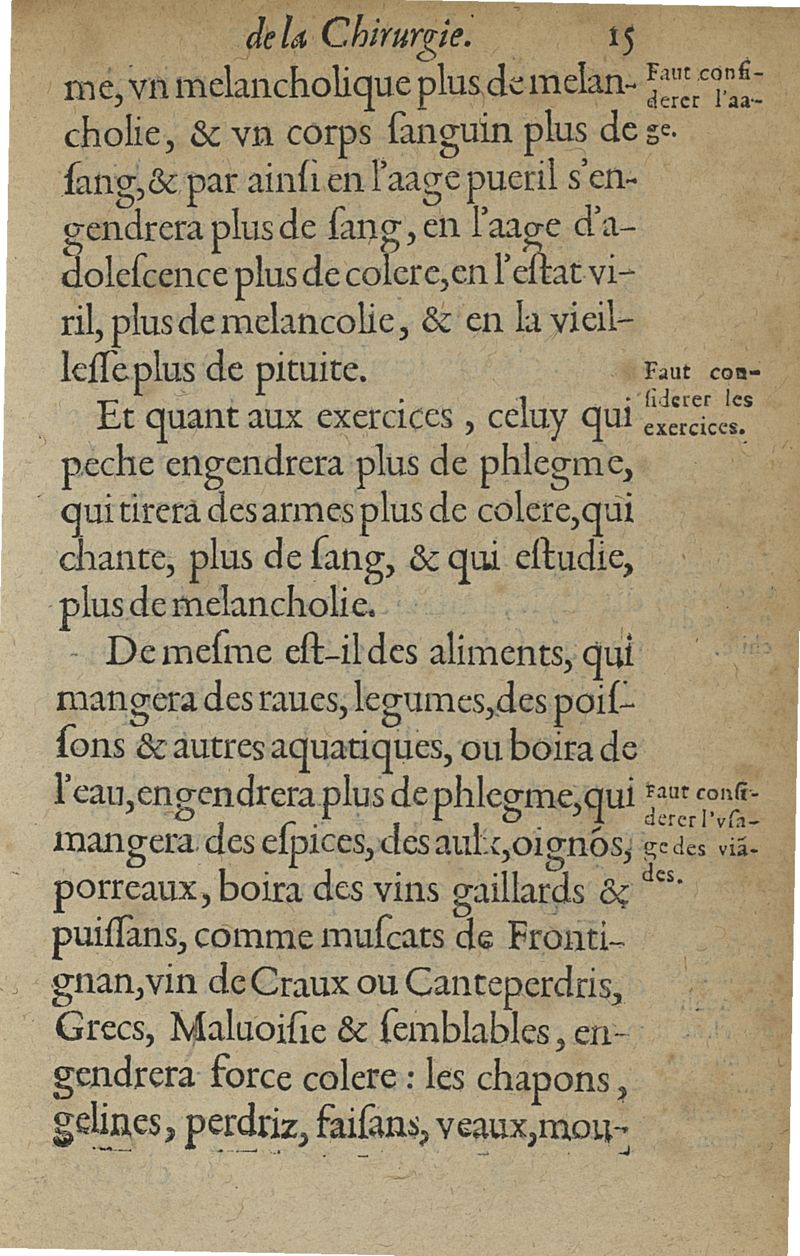 de la Chirurgie. 15
me, vn melancholique plus de melan-
cholie, & vn corps ſanguin plus de
ſang, & par ainſi en l'aage pueril s'en-
gendrera plus de ſang, en l'aage d'a-
doleſcence plus de colere, en l'eſtat vi-
ril, plus de melancolie, & en la vieil-
leſſe plus de pituite.
Et quant aux exercices, celuy qui
peche engendrera plus de phlegme,
qui tirera des armes plus de colere, qui
chante, plus de ſang, & qui eſtudie,
plus de melancholie.
De meſme eſt-il des aliments, qui
mangera des raues, legumes, des poiſ-
ſons & autres aquatiques, ou boira de
l'eau, engendrera plus de phlegme, qui
mangera des eſpices, des aulx, oignõs,
porreaux, boira des vins gaillards &
puiſſans, comme muſcats de Fronti-
gnan, vin de Craux ou Canteperdris,
Grecs, Maluoiſie & ſemblables, en-
gendrera force colere : les chapons,
gelines, perdriz, faiſans, veaux, mou-
Faut conſi-
derer l'aa-
ge.
Faut con-
ſiderer les
exercices.
Faut conſi-
derer l'vſa-
ge des viã-
des.